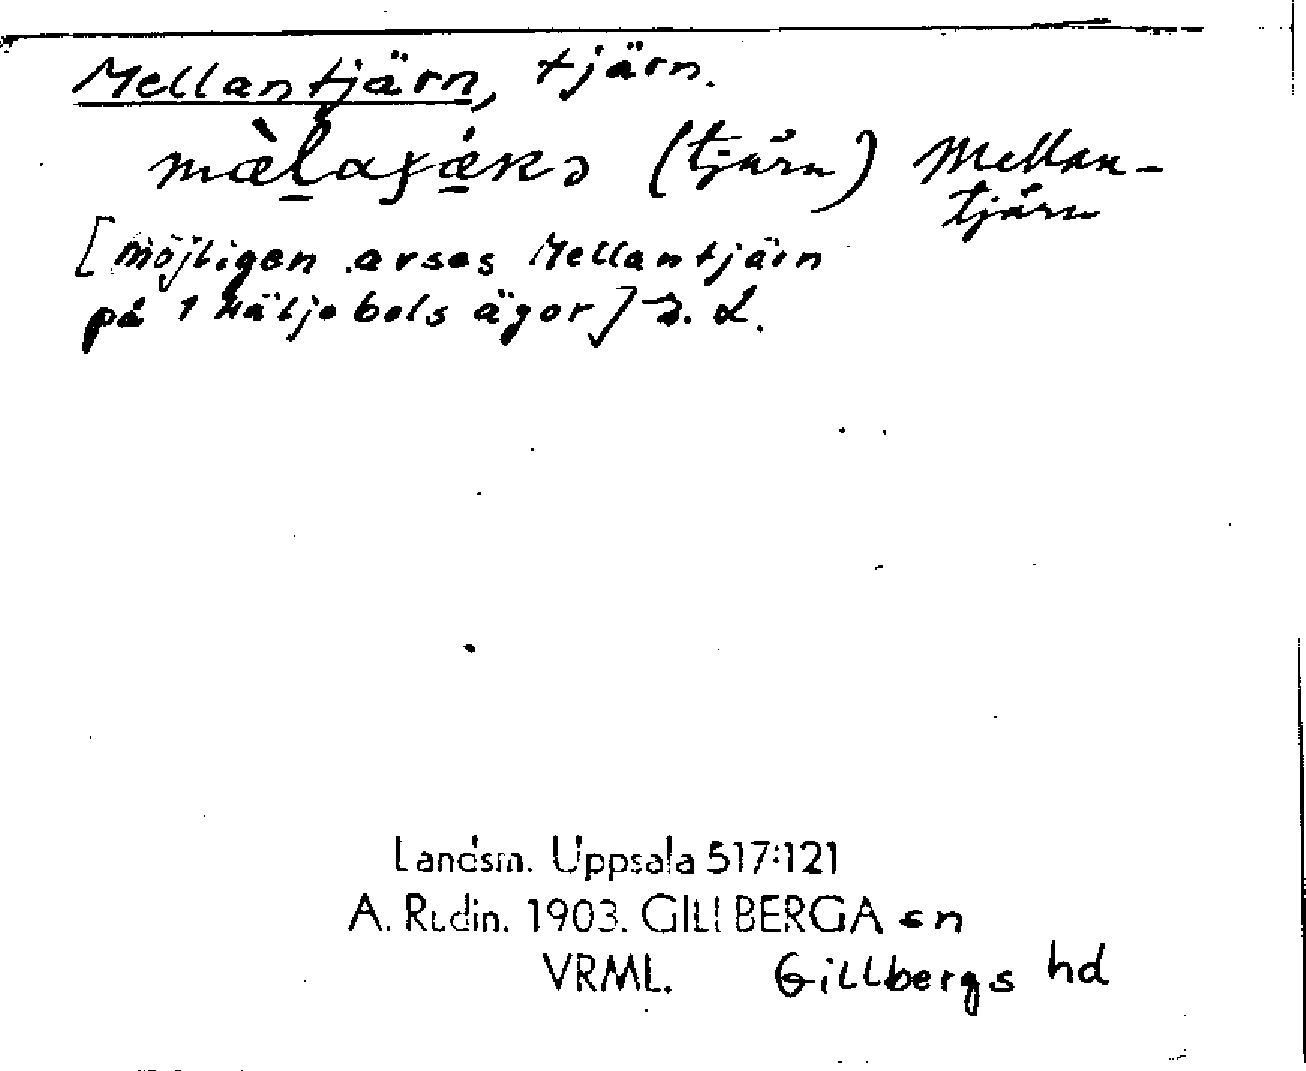 Mellantjärn, tjärn.
(tjärn) Mellan-
tjärn
[möjligen avses Mellantjärn
på 1 Häljebols ägor]
Landsm. Uppsala 517:121
A. Rudin. 1903. GILLBERGA sn
VRML. Gillbergs hd